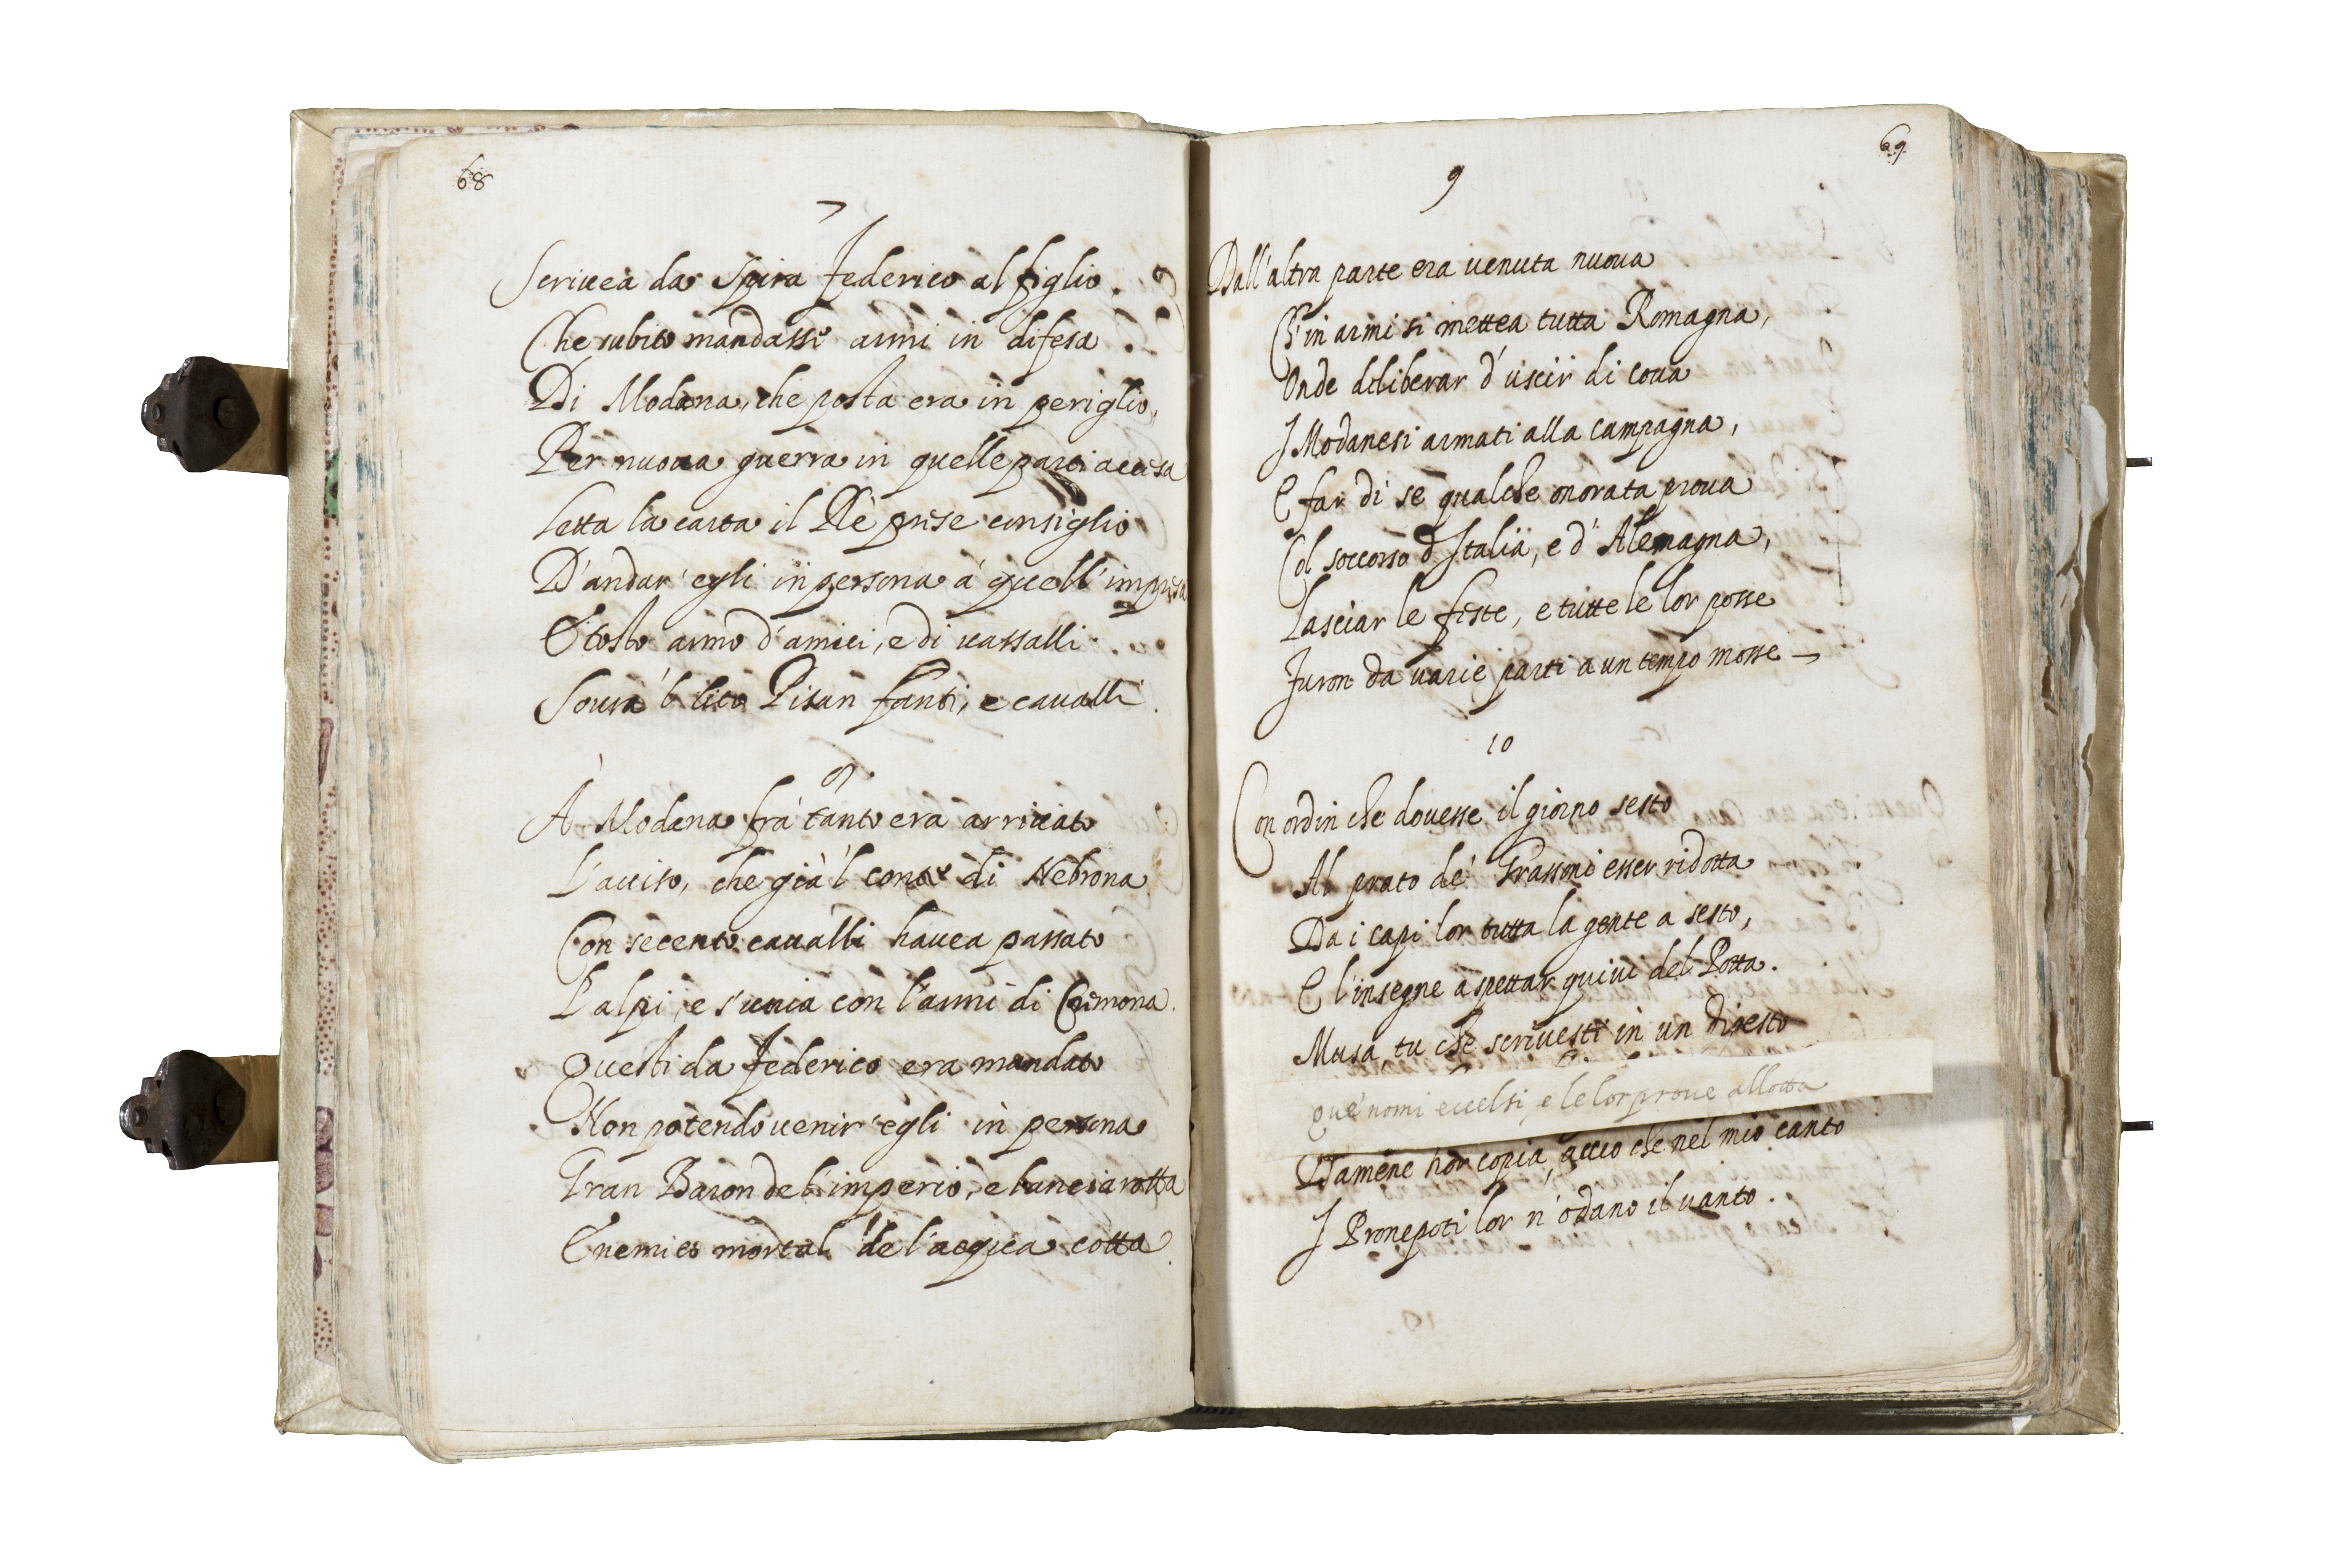 68
7
Scrivea da Spira Federico al figlio
Che subito mandasse armi in difesa
Di Modana, che posta era in periglio,
Per nuova guerra in quelle parti accesa
Letta la carta il Rè prese consiglio
D'andar' egli in persona à quell'impresa
E tosto armò d'amici, e di vassalli
Sovra 'l lito Pisan fanti, e cavalli.
8
A Modana frà tanto era arrivato
L'aviso, che già 'l conte di Nebrona
Con secento cavalli havea passato
L'alpi, e s'unia con l'armi di Cremona.
Questi da Federico era mandato
Non potendo venir egli in persona
Gran Baron de l'imperio, e lancia rotta
E nemico mortal de l'acqua cotta.
69
9
Dall'altra parte era venuta nuova
Ch'in armi si mettea tutta Romagna,
Onde diliberar d'uscir di cova
I Modanesi armati alla campagna,
E far di se qualche onorata prova
Col soccorso d'Italia, e d'Alemagna,
Lasciar le feste, e tutte le lor posse
Furon da varie parti a un tempo mosse
10
Con ordin che dovesse il giorno sesto
Al prato de' Grassoni esser ridotta
Da i capi lor tutta la gente a sesto,
E l'insegne aspettar quivi del Potta.
Musa, tu che scrivesti in un digesto
que' nomi eccelsi, e le lor prove allotta
Damene hor copia, acciò che nel mio canto
I Pronepoti lor n'odano il vanto.